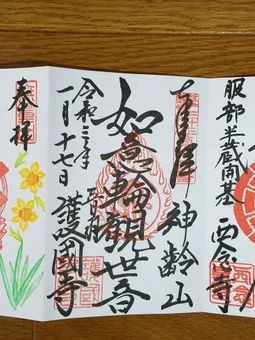 服部半蔵開基
西念寺
奉拝
神齢山
如意輪観世音
令和三年
一月十七日
護国寺
奉拝